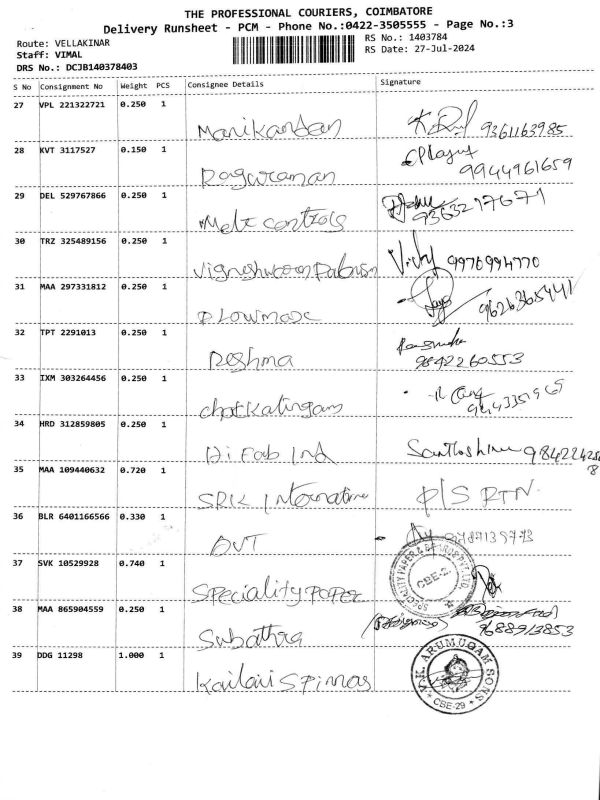 THE PROFESSIONAL COURIERS, COIMBATORE
Delivery Runsheet - PCM - Phone No.:0422-3505555 - Page No.:3
Route: VELLAKINAR
Staff: VIMAL
DRS No.: DCJB140378403
RS No.: 1403784
RS Date: 27-Jul-2024
S No Consignment No Weight PCS Consignee Details Signature
27 VPL 221322721 0.250 1
Manikandan 9361163985
28 KVT 3117527 0.150 1
Raguraman 9944961659
29 DEL 529767866 0.250 1
Melt controls 9363217671
30 TRZ 325489156 0.250 1
Vigneshwara Vicky 9976994770
31 MAA 297331812 0.250 1
Plowmax 9626365441
32 TPT 2291013 0.250 1
Reshma 9842260553
33 IXM 303264456 0.250 1
chokkalingam
34 HRD 312859805 0.250 1
Hi Fab Ind
35 MAA 109440632 0.720 1
SRK International P/S RTN
36 BLR 6401166566 0.330 1
37 SVK 10529928 0.740 1
Speciality Paper
SPECIALITY PAPER & BOARDS PVT. LTD.
CBE-2
38 MAA 865904559 0.250 1
Subathra 9688913853
39 DDG 11298 1.000 1
Kailai Spinnas
V.K. ARUMUGAM SONS
* CBE-29 *